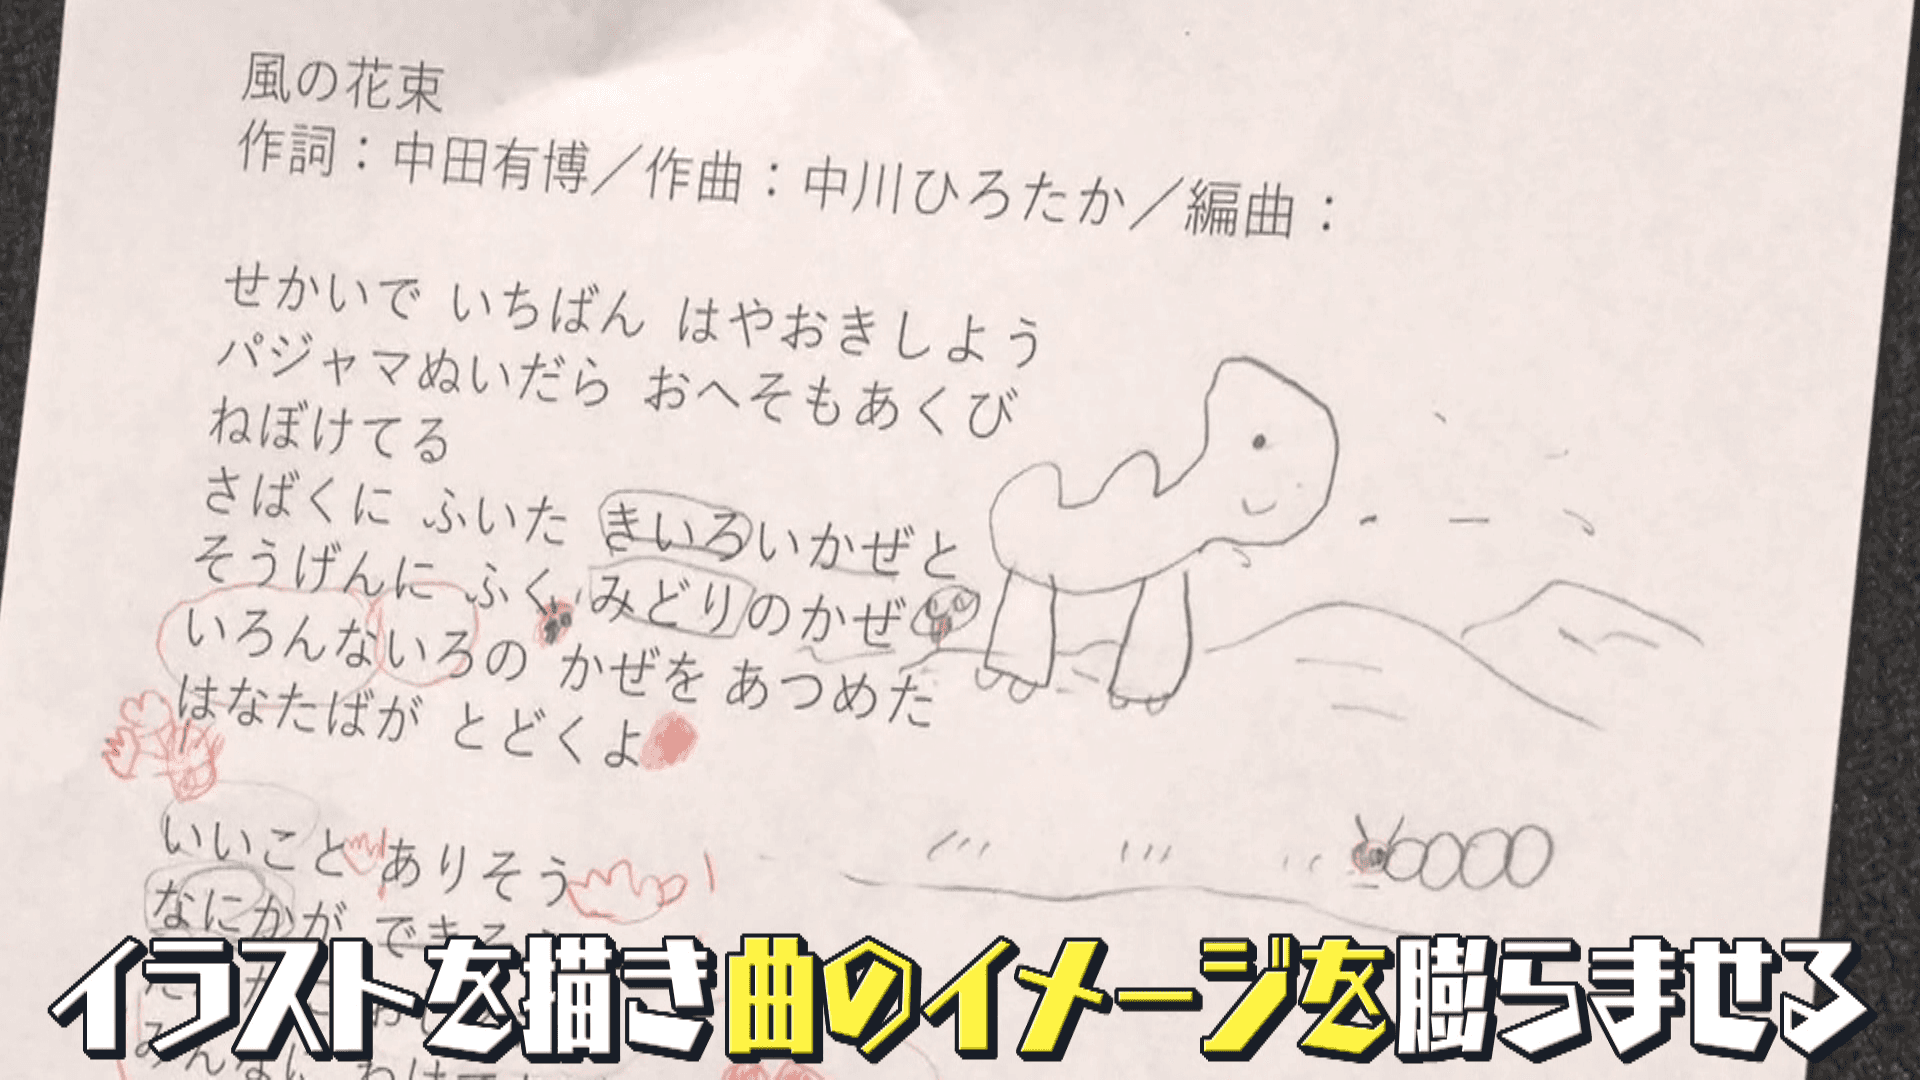 風の花束
作詞：中田有博／作曲：中川ひろたか／編曲：
せかいで いちばん はやおきしよう
パジャマぬいだら おへそもあくび
ねぼけてる
さばくに ふいた きいろいかぜと
そうげんに ふく みどりのかぜ
いろんないろの かぜを あつめた
はなたばが とどくよ
いいこと ありそう
なにかが できそう
イラストを描き曲のイメージを膨らませる